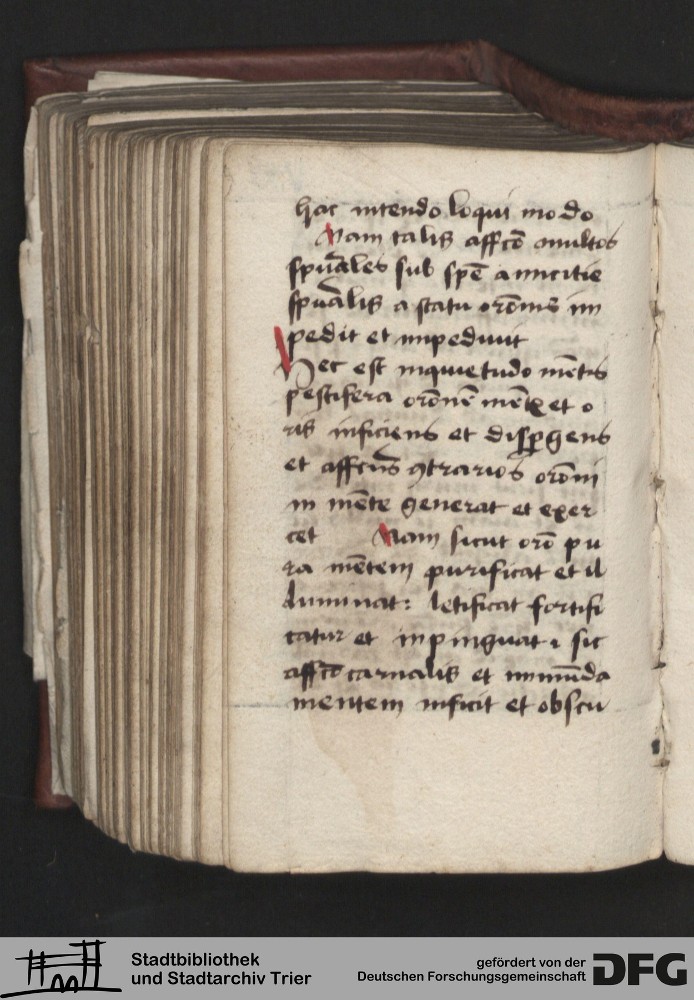 hac intendo loqui modo
Nam talis affcō multos
spūales sub spē amicitie
spūalis a statu orōnis im
pedit et impediuit
Hec est inquietudo mētis
pestifera orōnē mētē et o
ris inficiens et dispgens
et affcūs ꝯtrarios orōni
in mēte generat et exer
cet Nam sicut orō pu
ra mētem purificat et il
luminat: letificat fortifi
catur et inpinguat: sic
affcō carnalis et immūda
mentem inficit et obscu
Stadtbibliothek
und Stadtarchiv Trier
gefördert von der
Deutschen Forschungsgemeinschaft
DFG